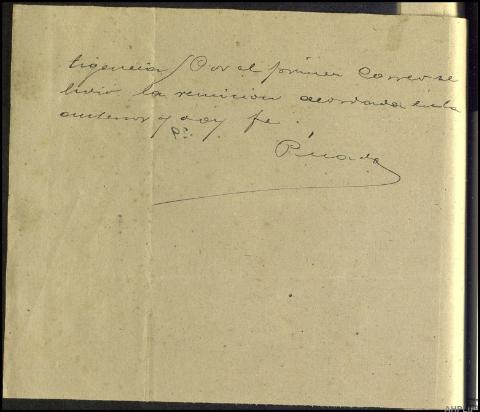 tigencia / Por el primer Correo se
hizo la remision acordada en la
anterior y doy fe.